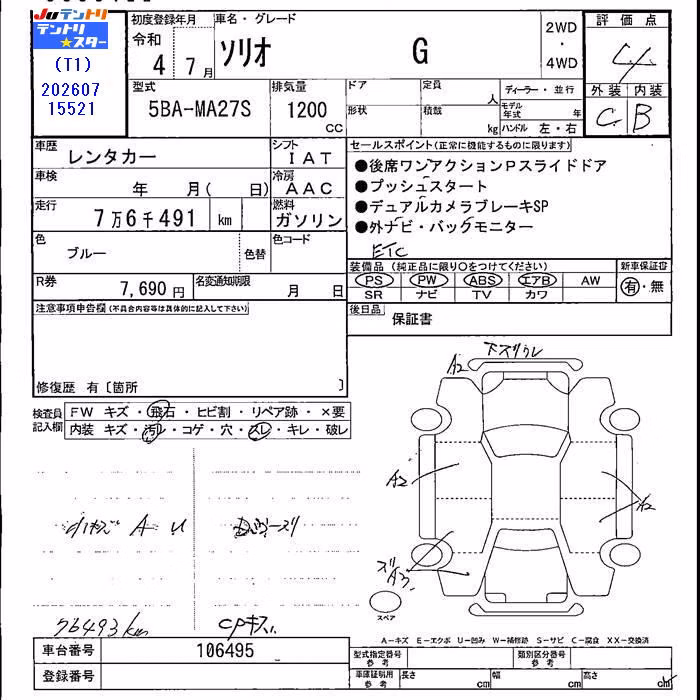 Juテントリ
テントリ
★スター
(T1)
202607
15521
初度登録年月
令和
4年7月
車名・グレード
ソリオ G
2WD
・
4WD
評価点
4
外装 内装
C B
型式
5BA-MA27S
排気量
1200
cc
ドア
形状
定員
人
積載
kg
ディーラー・並行
モデル年式 年
ハンドル 左・右
車歴
レンタカー
シフト
IAT
車検
年 月( 日)
冷房
AAC
走行
7万6千491 km
燃料
ガソリン
色
ブルー
色替
色コード
R券
7,690 円
名変通知期限
月 日
セールスポイント(正常に機能するものに限ります)
●後席ワンアクションPスライドドア
●プッシュスタート
●デュアルカメラブレーキSP
●外ナビ・バックモニター
ETC
装備品(純正品に限り○をつけてください)
PS PW ABS エアB AW
SR ナビ TV カワ
新車保証書
有・無
後日品
保証書
注意事項申告欄(不具合内容等は具体的に記入して下さい)
修復歴 有〔箇所 〕
検査員
記入欄
FW キズ・飛石・ヒビ割・リペア跡・×要
内装 キズ・汚レ・コゲ・穴・スレ・キレ・破レ
下ズリウレ
A2
A2
A2
A3
A U
76493km
CPキズ
スペア
A-キズ E-エクボ U-凹み W-補修跡 S-サビ C-腐食 XX-交換済
車台番号
106495
登録番号
型式指定番号
参考
類別区分番号
参考
車庫証明用
参考
長さ cm
幅 cm
高さ cm